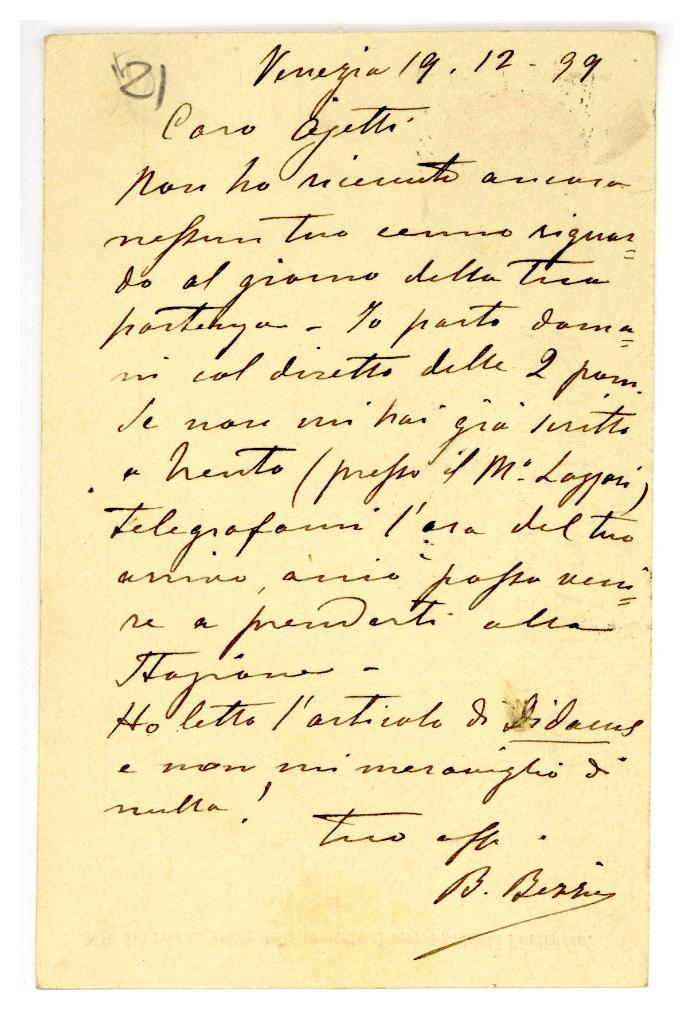 21
Venezia 19. 12 - 99
Caro Ojetti
Non ho ricevuto ancora
nessun tuo cenno riguar=
do al giorno della tua
partenza - Io parto doma=
ni col diretto delle 2 pom.
Se non mi hai già scritto
a Trento (presso il Mo. Lazzari)
telegrafami l'ora del tuo
arrivo, acciò possa veni=
re a prenderti alla
Stazione -
Ho letto l'articolo di Didacus
e non mi meraviglio di
nulla!
tuo aff.
B. Bezzi